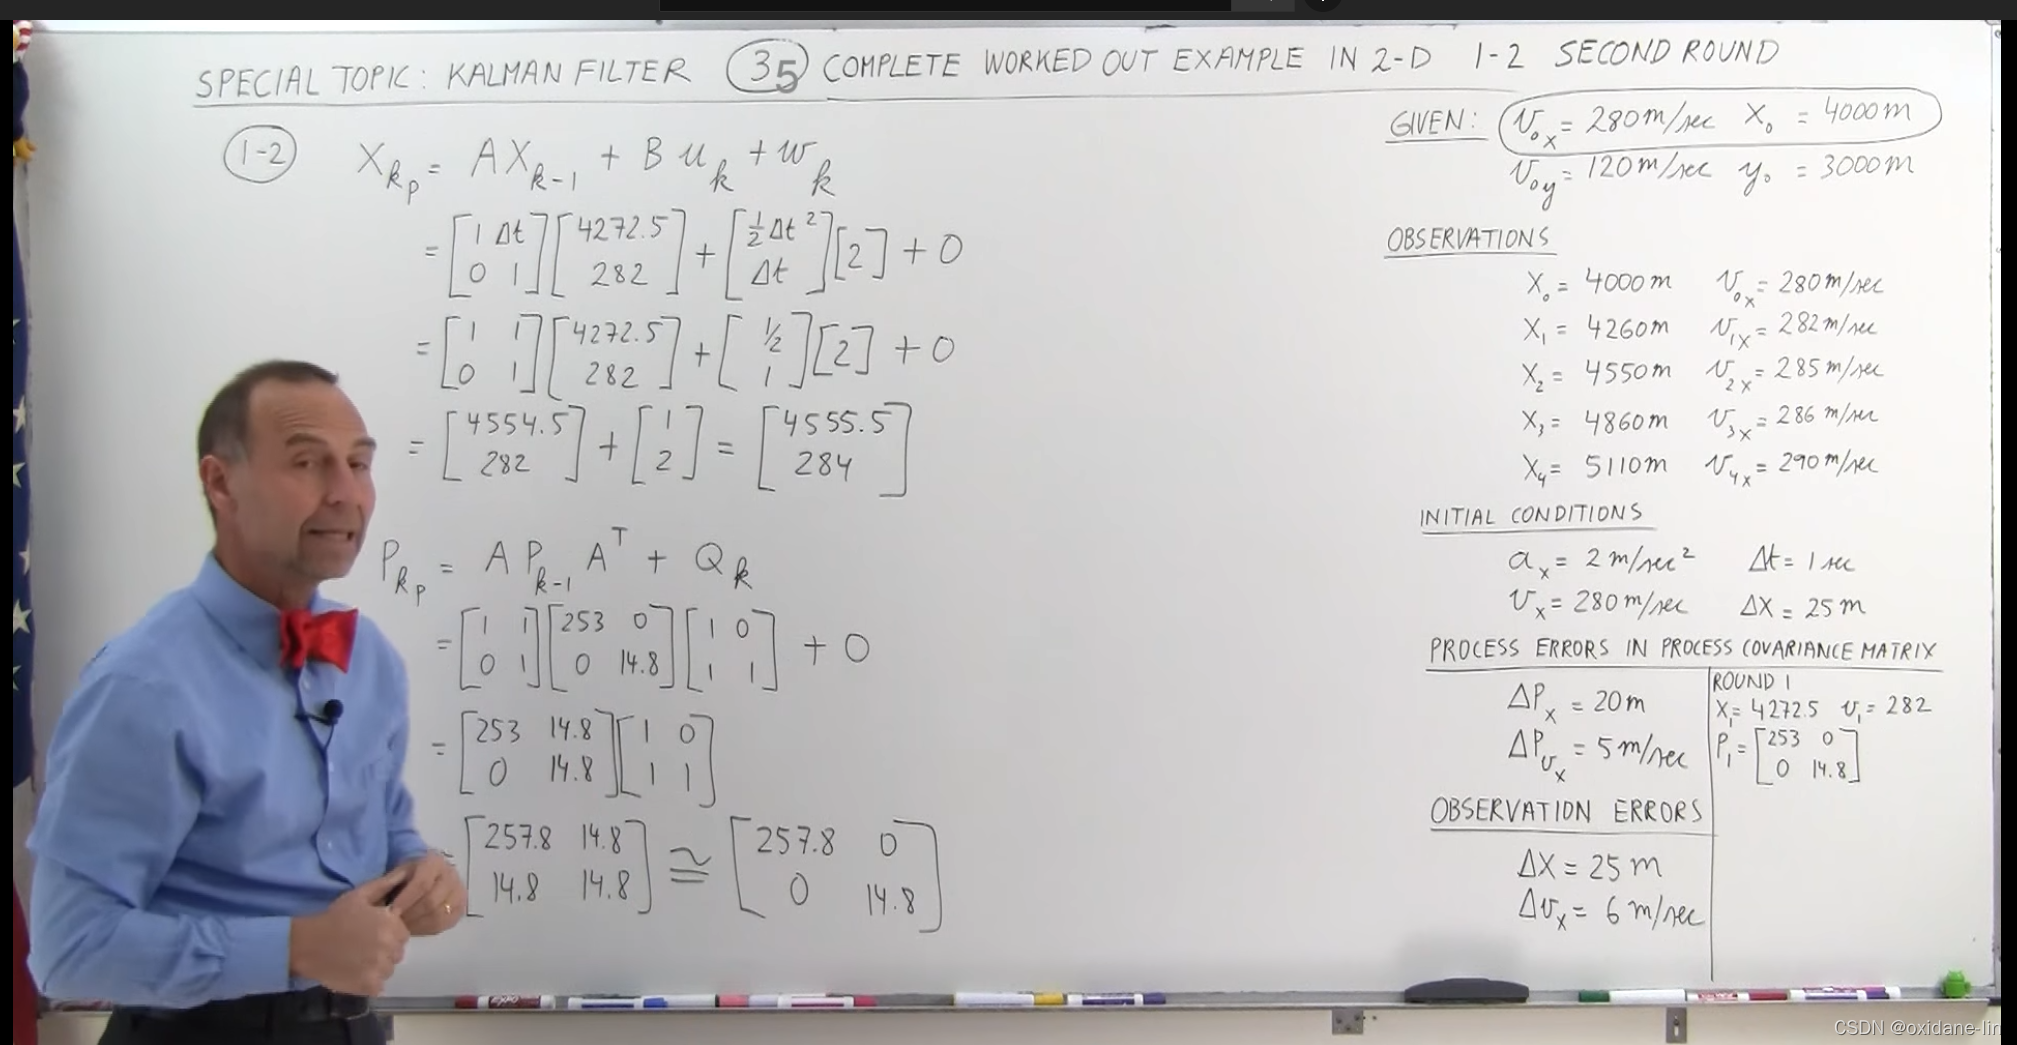 SPECIAL TOPIC: KALMAN FILTER 35 COMPLETE WORKED OUT EXAMPLE IN 2-D 1-2 SECOND ROUND
1-2 X_{k_p} = A X_{k-1} + B u_k + w_k
= [1 Δt; 0 1] [4272.5; 282] + [½Δt²; Δt] [2] + 0
= [1 1; 0 1] [4272.5; 282] + [½; 1] [2] + 0
= [4554.5; 282] + [1; 2] = [4555.5; 284]
P_{k_p} = A P_{k-1} A^T + Q_k
= [1 1; 0 1] [253 0; 0 14.8] [1 0; 1 1] + 0
= [253 14.8; 0 14.8] [1 0; 1 1]
= [257.8 14.8; 14.8 14.8] ≅ [257.8 0; 0 14.8]
GIVEN: v_{0x} = 280 m/sec X_0 = 4000 m
v_{0y} = 120 m/sec y_0 = 3000 m
OBSERVATIONS
X_0 = 4000 m v_{0x} = 280 m/sec
X_1 = 4260 m v_{1x} = 282 m/sec
X_2 = 4550 m v_{2x} = 285 m/sec
X_3 = 4860 m v_{3x} = 286 m/sec
X_4 = 5110 m v_{4x} = 290 m/sec
INITIAL CONDITIONS
a_x = 2 m/sec² Δt = 1 sec
v_x = 280 m/sec ΔX = 25 m
PROCESS ERRORS IN PROCESS COVARIANCE MATRIX
ΔP_x = 20 m
ΔP_{v_x} = 5 m/sec
ROUND 1
X_1 = 4272.5 v_1 = 282
P_1 = [253 0; 0 14.8]
OBSERVATION ERRORS
ΔX = 25 m
Δv_x = 6 m/sec
CSDN @oxidane-lin